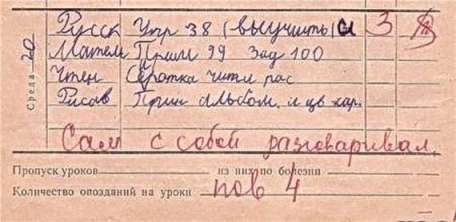 Среда 20
Русск Упр 38 (выучить) 3
Матем Прим 99 Зад 100
Чтен Серотка чита рас
Рисов Прин альбом. и цв кар.
Сам с собой разговаривал.
Пропуск уроков из них по болезни
Количество опозданий на уроки пов 4